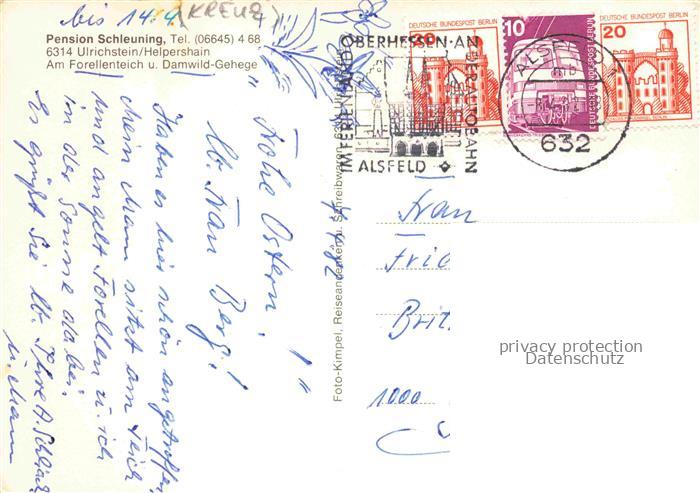 bis 14.4. (KREUZ
Pension Schleuning, Tel. (06645) 4 68
6314 Ulrichstein/Helpershain
Am Forellenteich u. Damwild-Gehege
"Frohe Ostern!"
Lb. Frau Berg!
Haben es hier schön angetroffen,
Mein Mann sitzt am Teich
und angelt Forellen u. ich
in der Sonne dabei.
Es grüßt Sie lb. Ihre A.
u. Mann
Foto-Kimpel, Reiseandenken u. Schreibwaren
IM FERIENLAND OBERHESSEN · AN DER AUTOBAHN
ALSFELD
DEUTSCHE BUNDESPOST BERLIN
20
10
DEUTSCHE BUNDESPOST BERLIN
DEUTSCHE BUNDESPOST BERLIN
20
ALSFELD
632
Frau
Brit
1000
privacy protection
Datenschutz